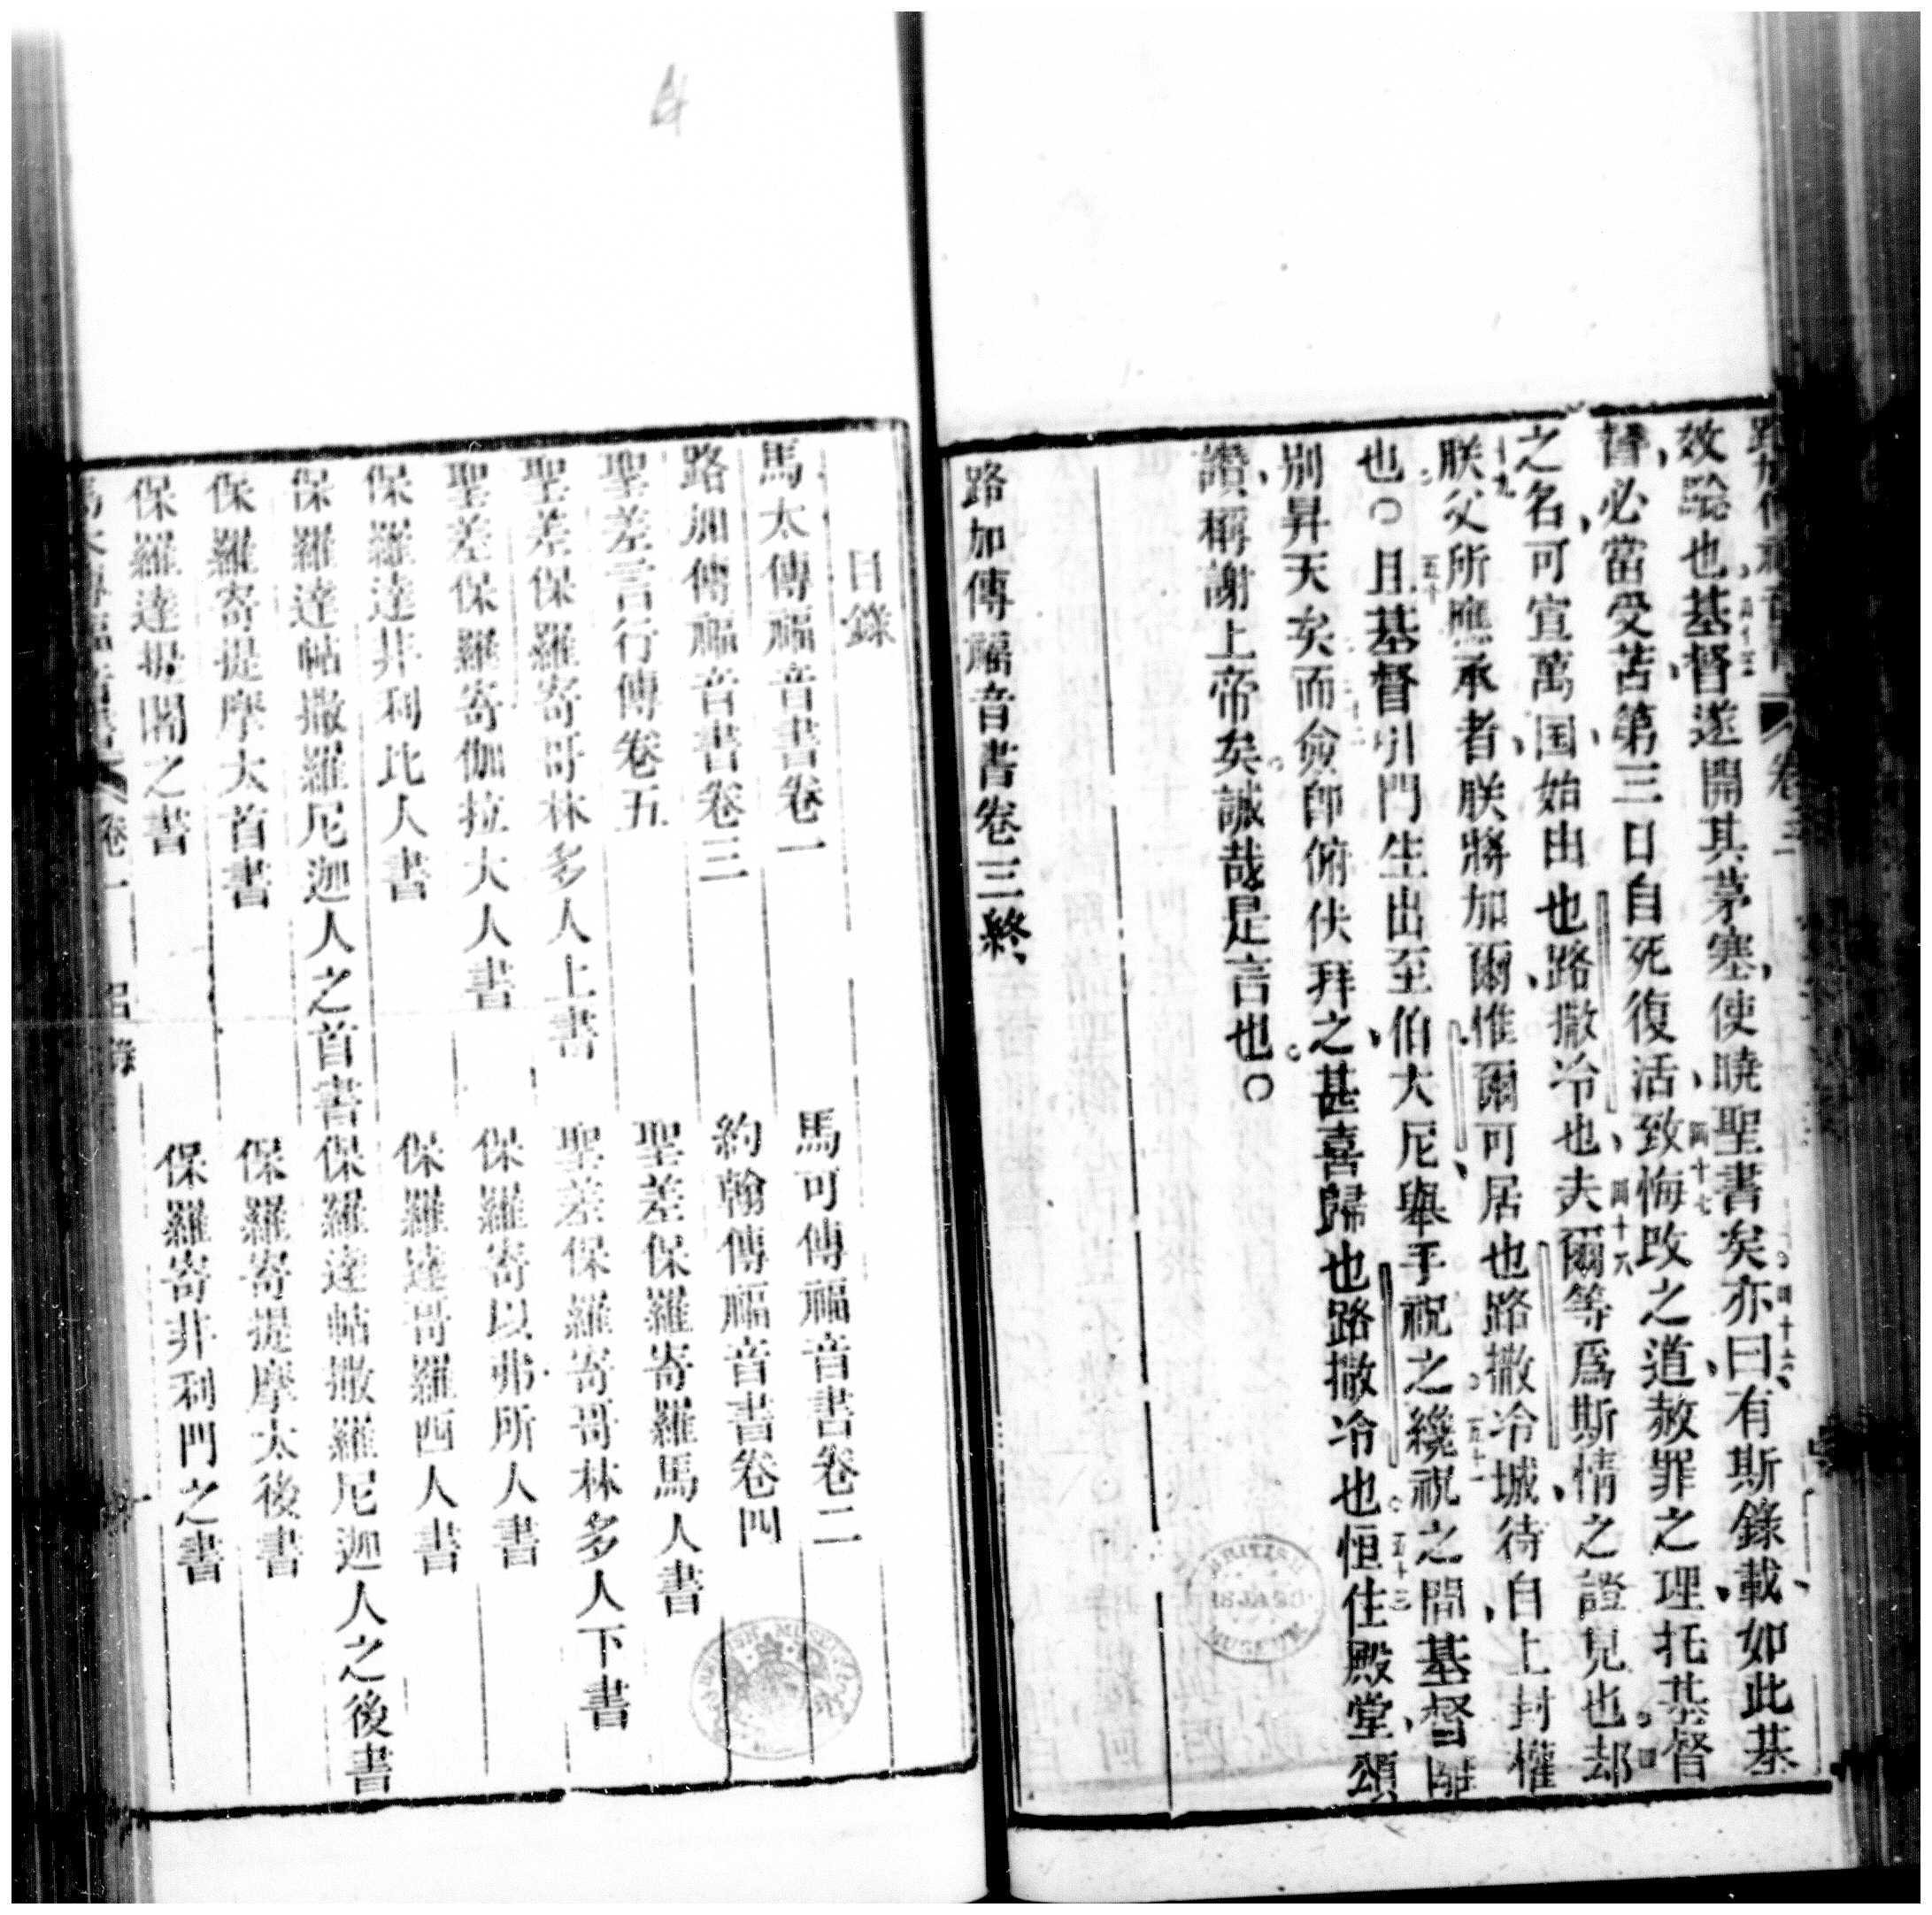 效騐也基督遂開其茅塞使暁聖書矣亦曰有斯錄載如此基
督必當受苦第三日自死復活致悔改之道赦罪之理托基督
之名可宣萬国始由也路撒冷也夫爾等爲斯情之證見也却
朕父所應承者朕將加爾惟爾可居也路撒冷城待自上封權
也〇且基督引門生出至伯大尼舉手祝之纔祝之間基督離
别昇天矣而僉卽俯伏拜之甚喜歸也路撒冷也恒住殿堂頌
讚稱謝上帝矣誠哉是言也〇
路加傳福音書卷三終
目錄
馬太傳福音書卷一 馬可傳福音書卷二
路加傳福音書卷三 約翰傳福音書卷四
聖差言行傳卷五 聖差保羅寄羅馬人書
聖差保羅寄哥林多人上書 聖差保羅寄哥林多人下書
聖差保羅寄伽拉大人書 保羅寄以弗所人書
保羅達非利比人書 保羅達哥羅西人書
保羅達帖撒羅尼迦人之首書 保羅達帖撒羅尼迦人之後書
保羅寄提摩太首書 保羅寄提摩太後書
保羅達提閙之書 保羅寄非利門之書